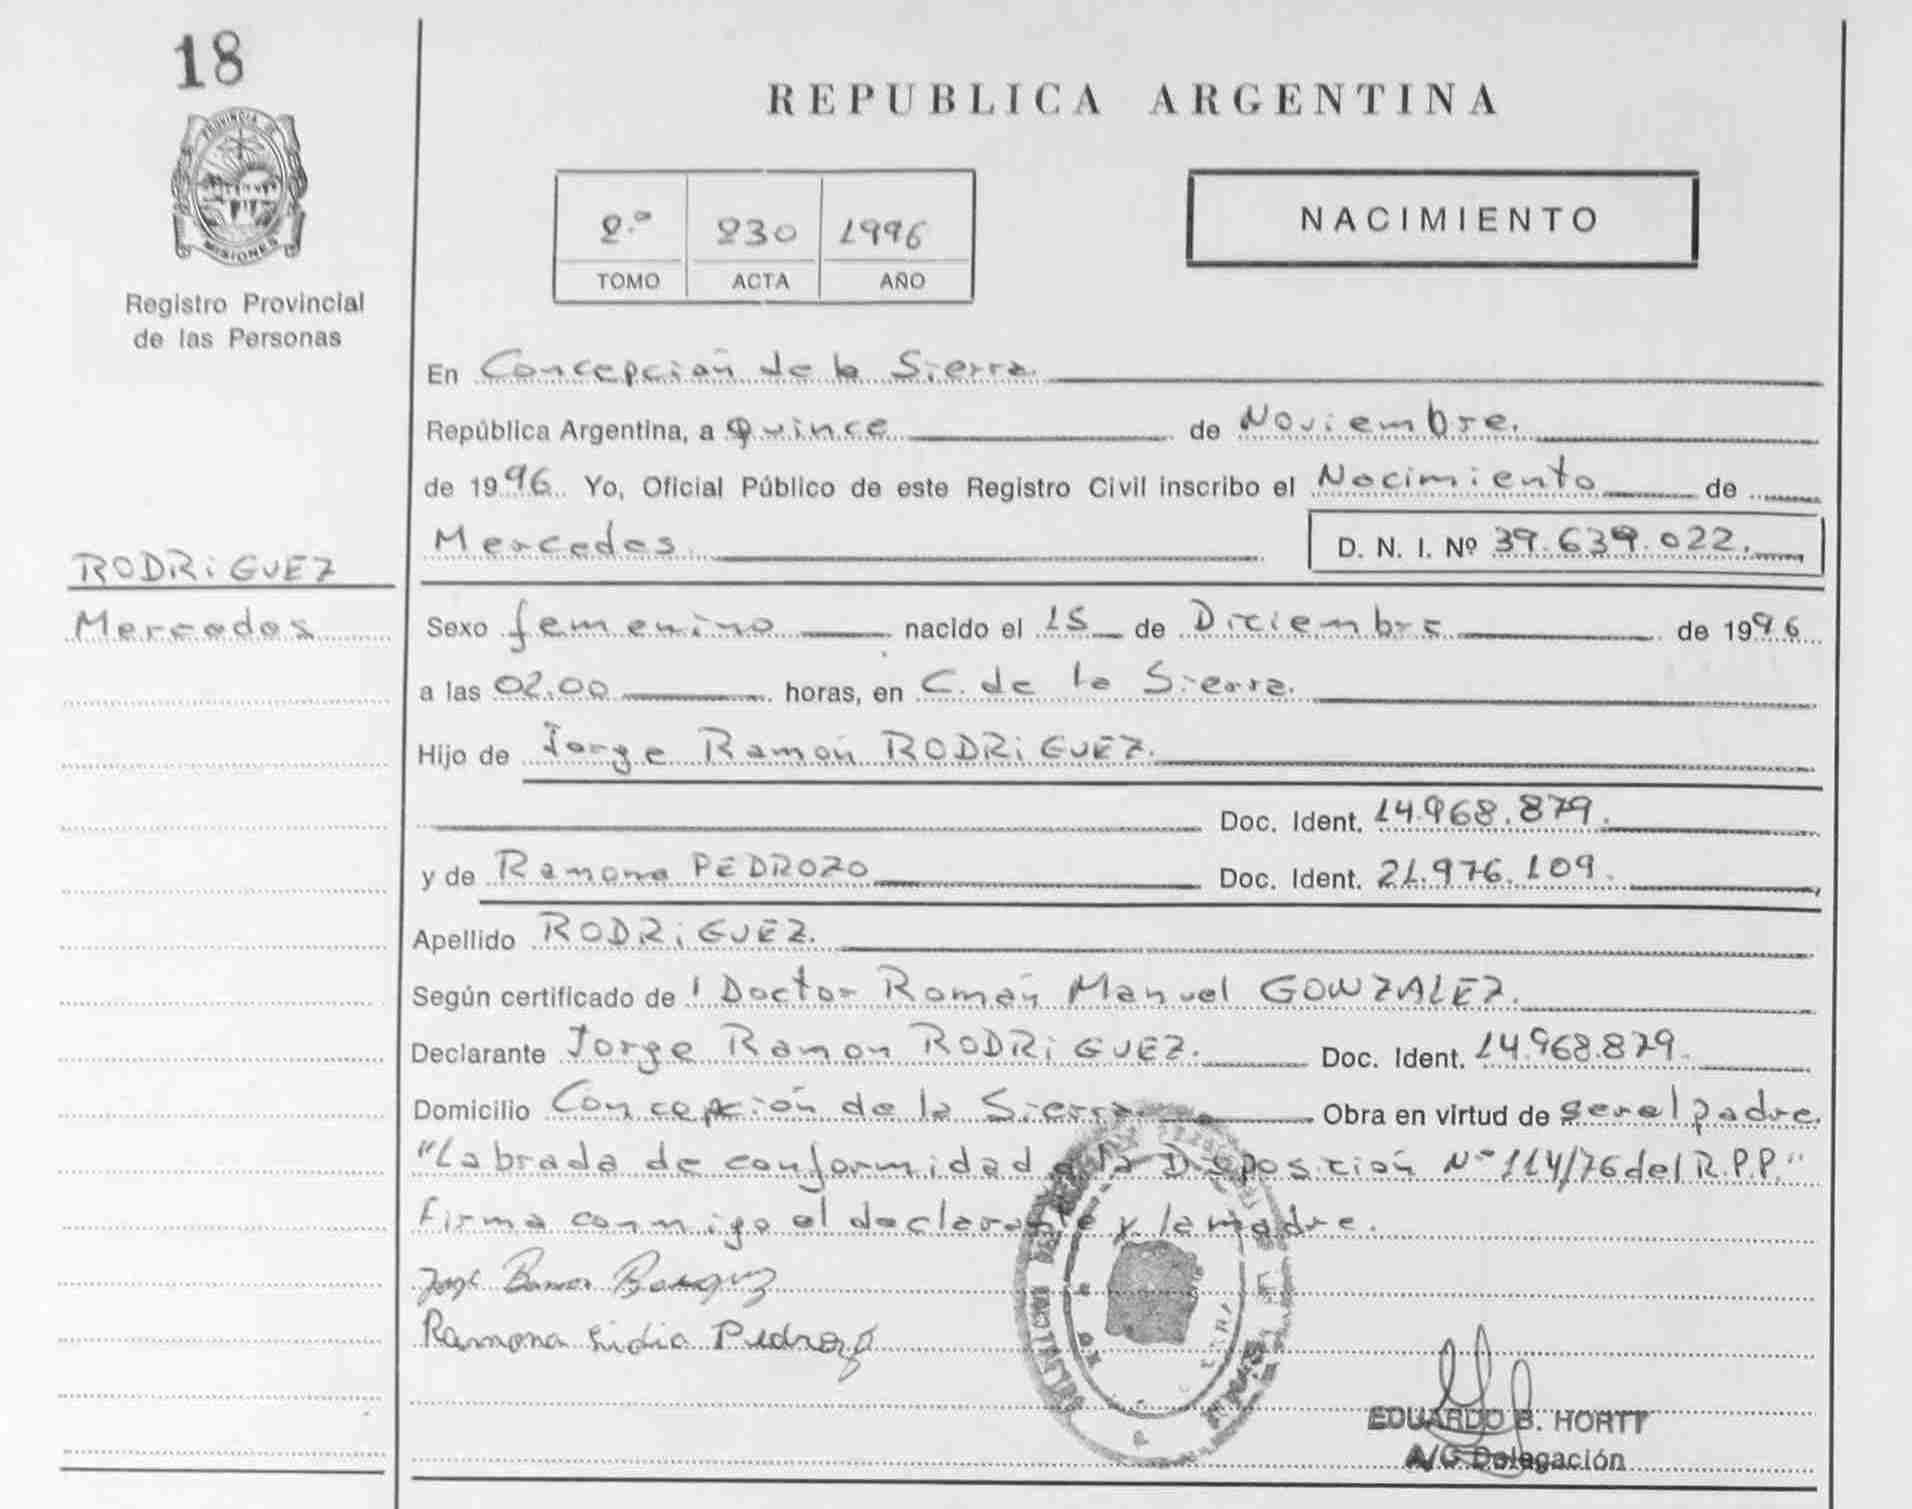 18
PROVINCIA DE
MISIONES
Registro Provincial
de las Personas
REPUBLICA ARGENTINA
2.º 230 1996
TOMO ACTA AÑO
NACIMIENTO
En Concepción de la Sierra.
República Argentina, a Quince de Noviembre.
de 1996. Yo, Oficial Público de este Registro Civil inscribo el Nacimiento de
Mercedes D. N. I. Nº 39.639.022.
RODRiGUEZ
Mercedes
Sexo femenino nacido el 15 de Diciembre de 1996
a las 02.00 horas, en C. de la Sierra.
Hijo de Jorge Ramón RODRiGUEZ.
Doc. Ident. 14.968.879.
y de Ramona PEDROZO Doc. Ident. 21.976.109.
Apellido RODRiGUEZ.
Según certificado de l Doctor Román Manuel GONZALEZ.
Declarante Jorge Ramon RODRiGUEZ. Doc. Ident. 14.968.879.
Domicilio Concepción de la Sierra Obra en virtud de ser el padre.
"Labrada de conformidad a la Disposición Nº 114/76 del R.P.P."
Firma conmigo el declarante y la madre.
Ramona Lidia Pedrozo
EDUARDO B. HORTT
A/C Delegación